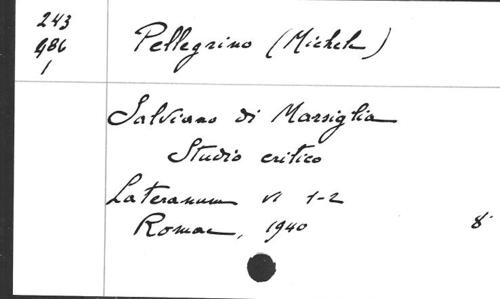 243
986
1
Pellegrino (Michele)
Salviano di Marsiglia
Studio critico
Lateranum VI 1-2
Romae, 1940
8°